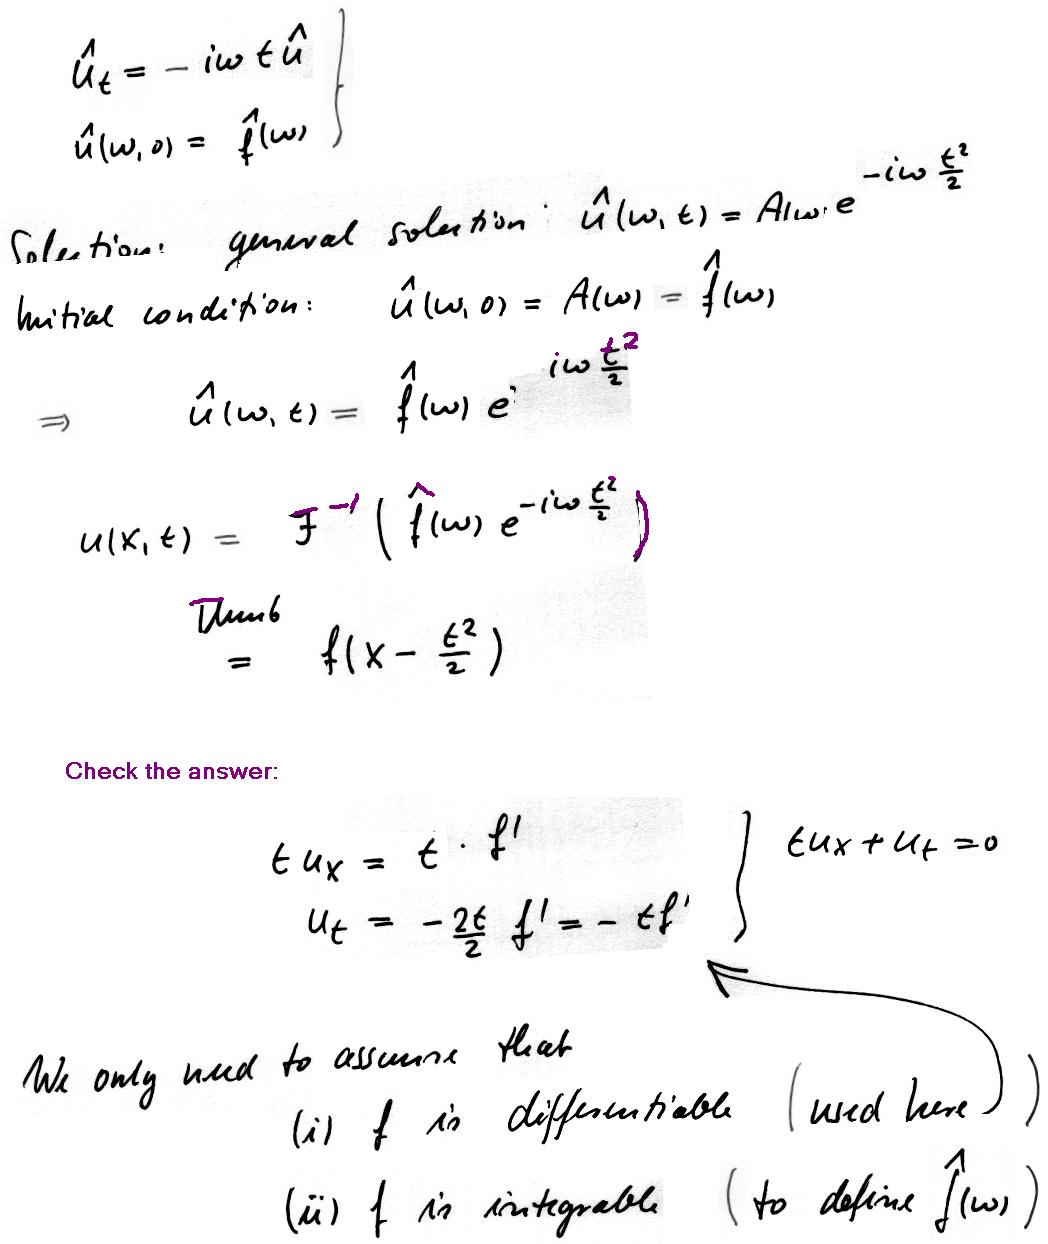 û_t = - iω t û
û(ω, 0) = f̂(ω)
Solution: general solution: û(ω, t) = A(ω) e^{-iω t²/2}
Initial condition: û(ω, 0) = A(ω) = f̂(ω)
⇒ û(ω, t) = f̂(ω) e^{iω t²/2}
u(x, t) = F⁻¹ ( f̂(ω) e^{-iω t²/2} )
= f(x - t²/2)
Check the answer:
t u_x = t · f' } t u_x + u_t = 0
u_t = - 2t/2 f' = - t f'
We only need to assume that
(i) f is differentiable (used here)
(ii) f is integrable (to define f̂(ω))